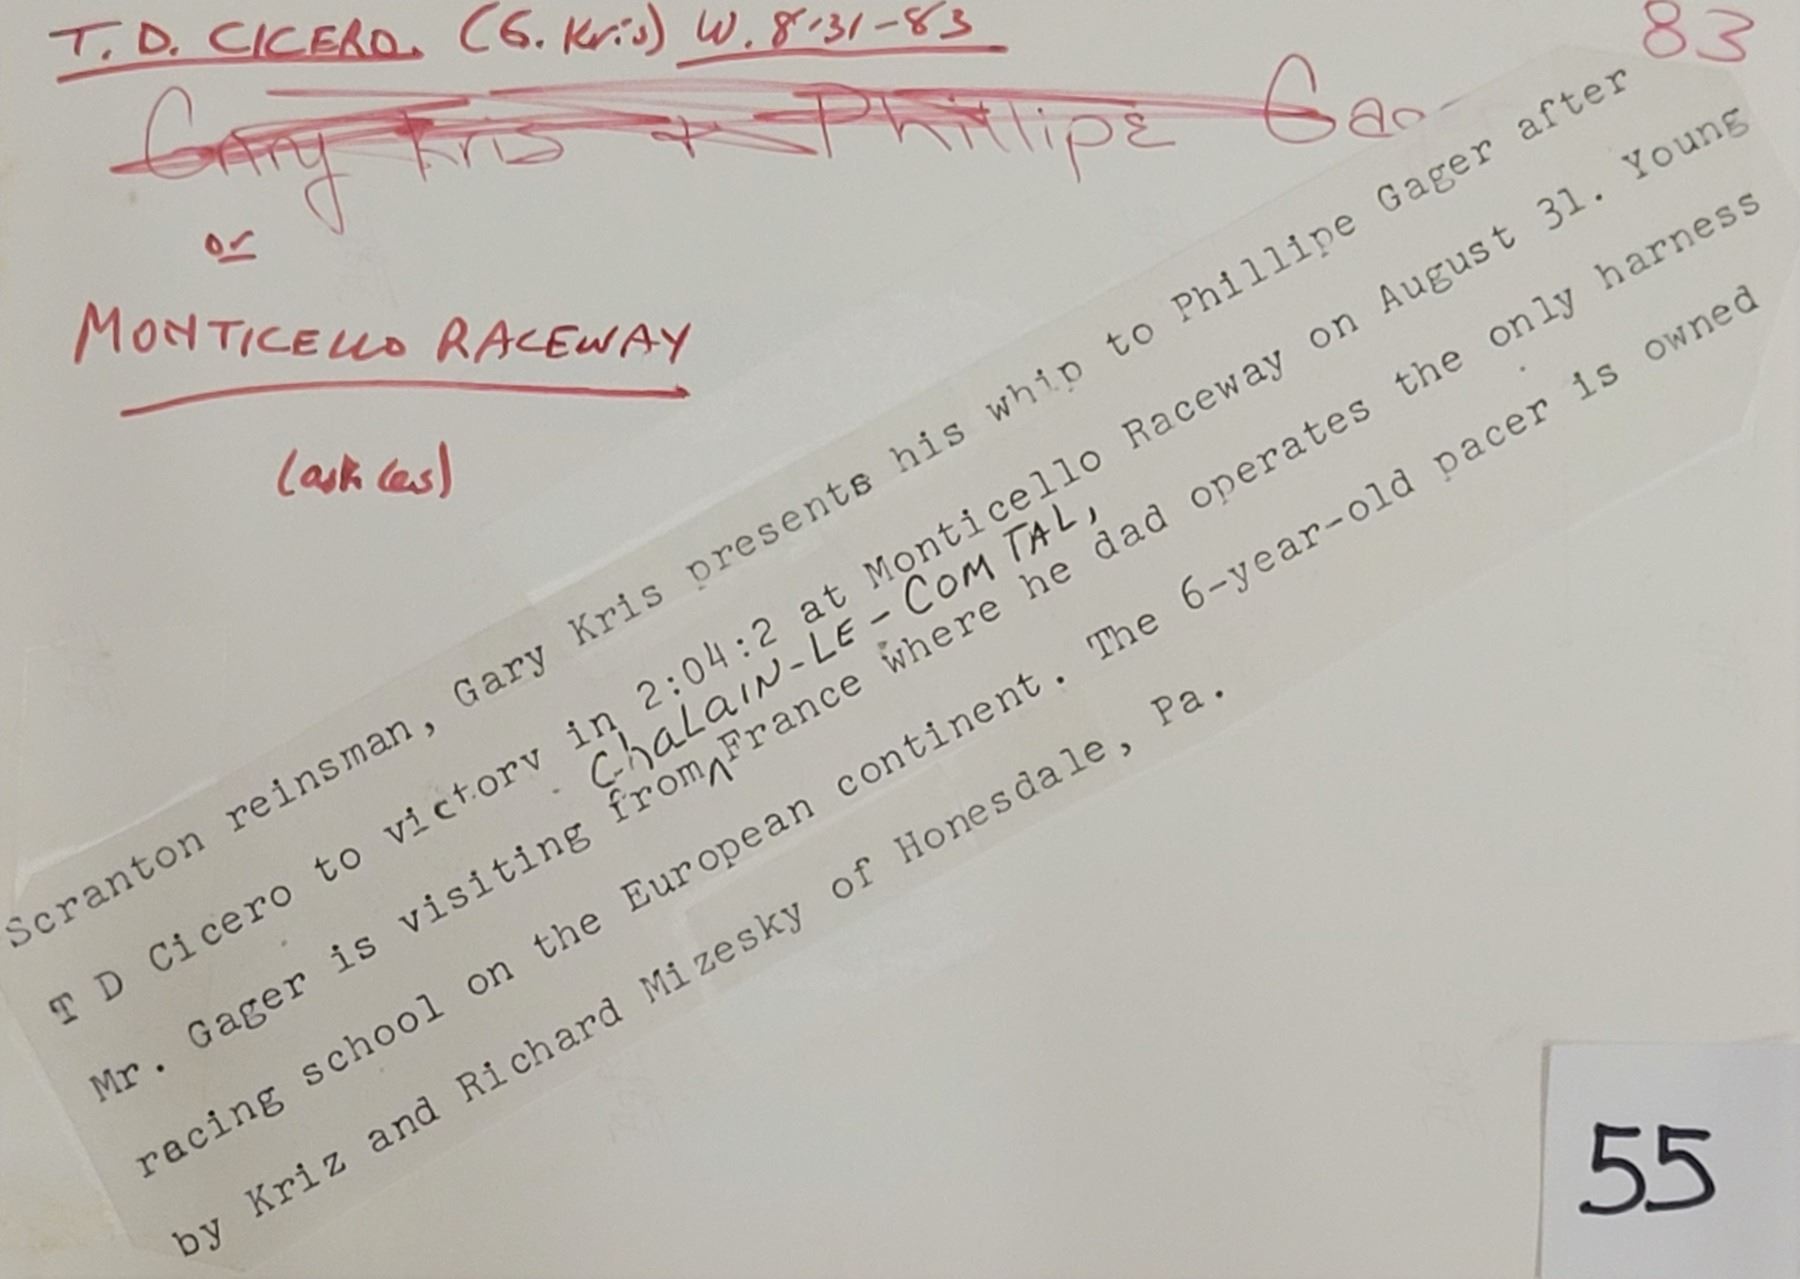 T. D. CICERO. (G. Kris) W. 8-31-83
83
Gary Kris + Phillipe Gag
or
MONTICELLO RACEWAY
(ask les)
Scranton reinsman, Gary Kris presents his whip to Phillipe Gager after
T D Cicero to victory in 2:04:2 at Monticello Raceway on August 31. Young
ChaLaIN-LE-COMTAL,
Mr. Gager is visiting from^France where he dad operates the only harness
racing school on the European continent. The 6-year-old pacer is owned
by Kriz and Richard Mizesky of Honesdale, Pa.
55